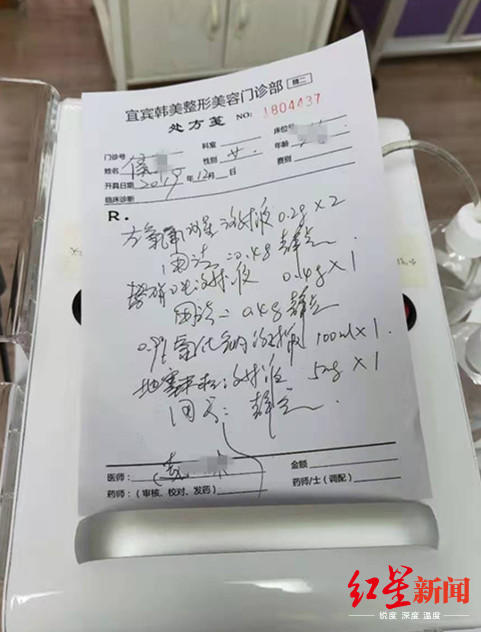 宜宾韩美整形美容门诊部
处方笺 NO: 1804437
门诊号 科室 床位号
姓名 性别 女 年龄
开具日期 2019年12月 日 费别
临床诊断
R.
左氧氟沙星注射液 0.2g×2
用法: 0.4g 静点
注射液 0.4g×1
用法: 0.4g 静点
0.9%氯化钠注射液 100ml×1
地塞米松注射液 5mg×1
用法: 静点
医师: 金额
药师:(审核、校对、发药) 药师/士(调配)
红星新闻
锐度 深度 温度